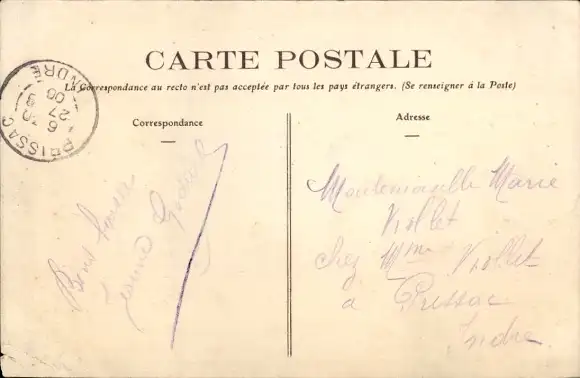 CARTE POSTALE
La Correspondance au recto n'est pas acceptée par tous les pays étrangers. (Se renseigner à la Poste)
PRISSAC
INDRE
6 30
27
9
08
Correspondance
Bons
Jeanne
Adresse
Mademoiselle Marie
Viollet
chez Mme Viollet
à Prissac
Indre